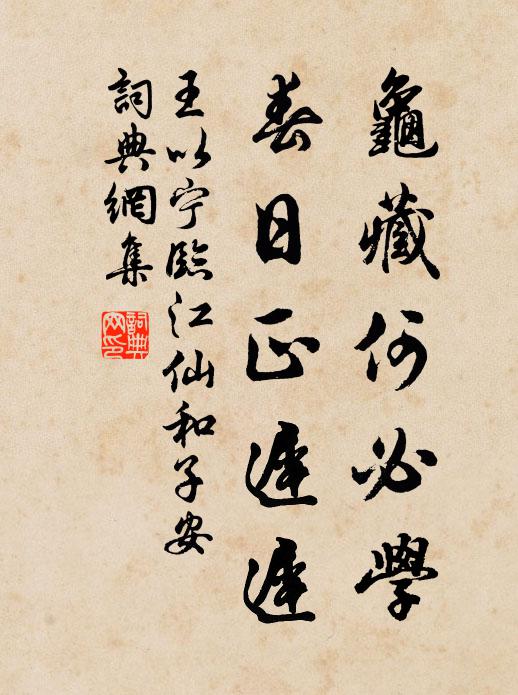 龜藏何必學
春日正遲遲
王以宁臨江仙和子安
詞典網集
詞典網印